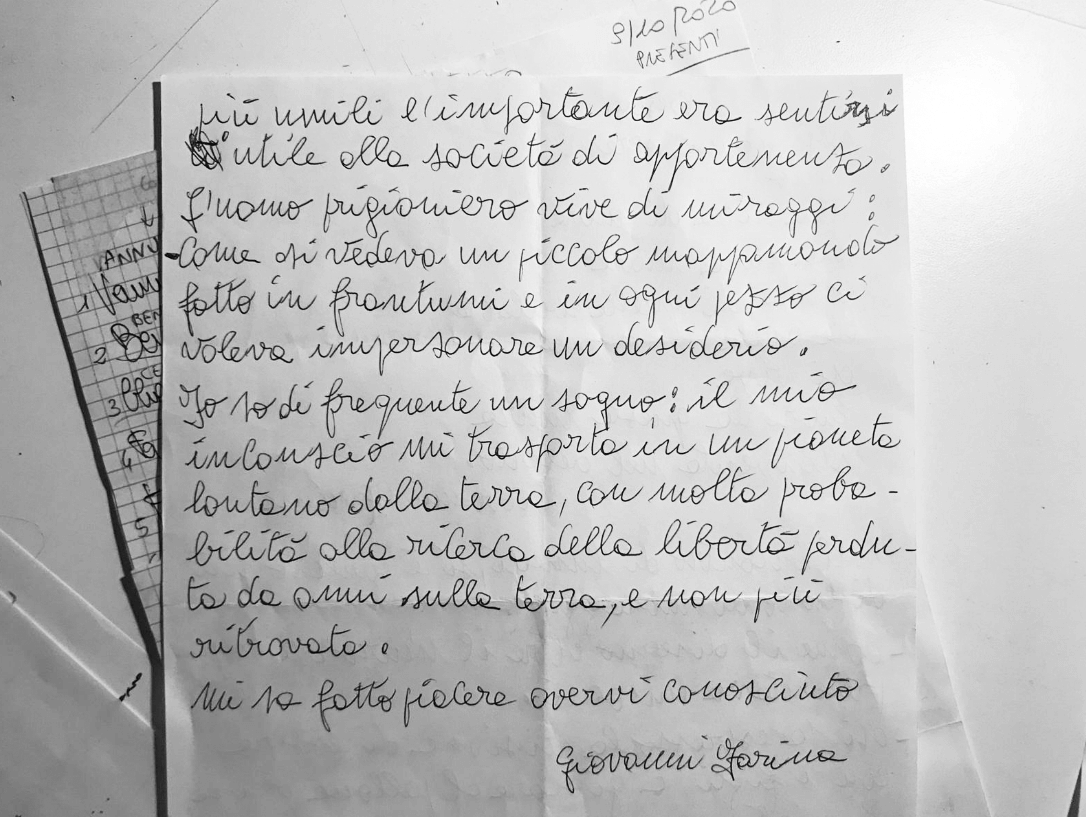 9/10/2020
PRESENTI
più umili e l'importante era sentirsi
utile alla società di appartenenza.
L'uomo prigioniero vive di miraggi:
Come si vedeva un piccolo mappamondo
fatto in frantumi e in ogni pezzo ci
voleva impersonare un desiderio.
Io so di frequente un sogno: il mio
inconscio mi trasporta in un pianeta
lontano dalla terra, con molta proba-
bilità alla ricerca della libertà perdu-
ta da anni sulla terra, e non più
ritrovata.
Mi sa fatto piacere avervi conosciuto
Giovanni Farina